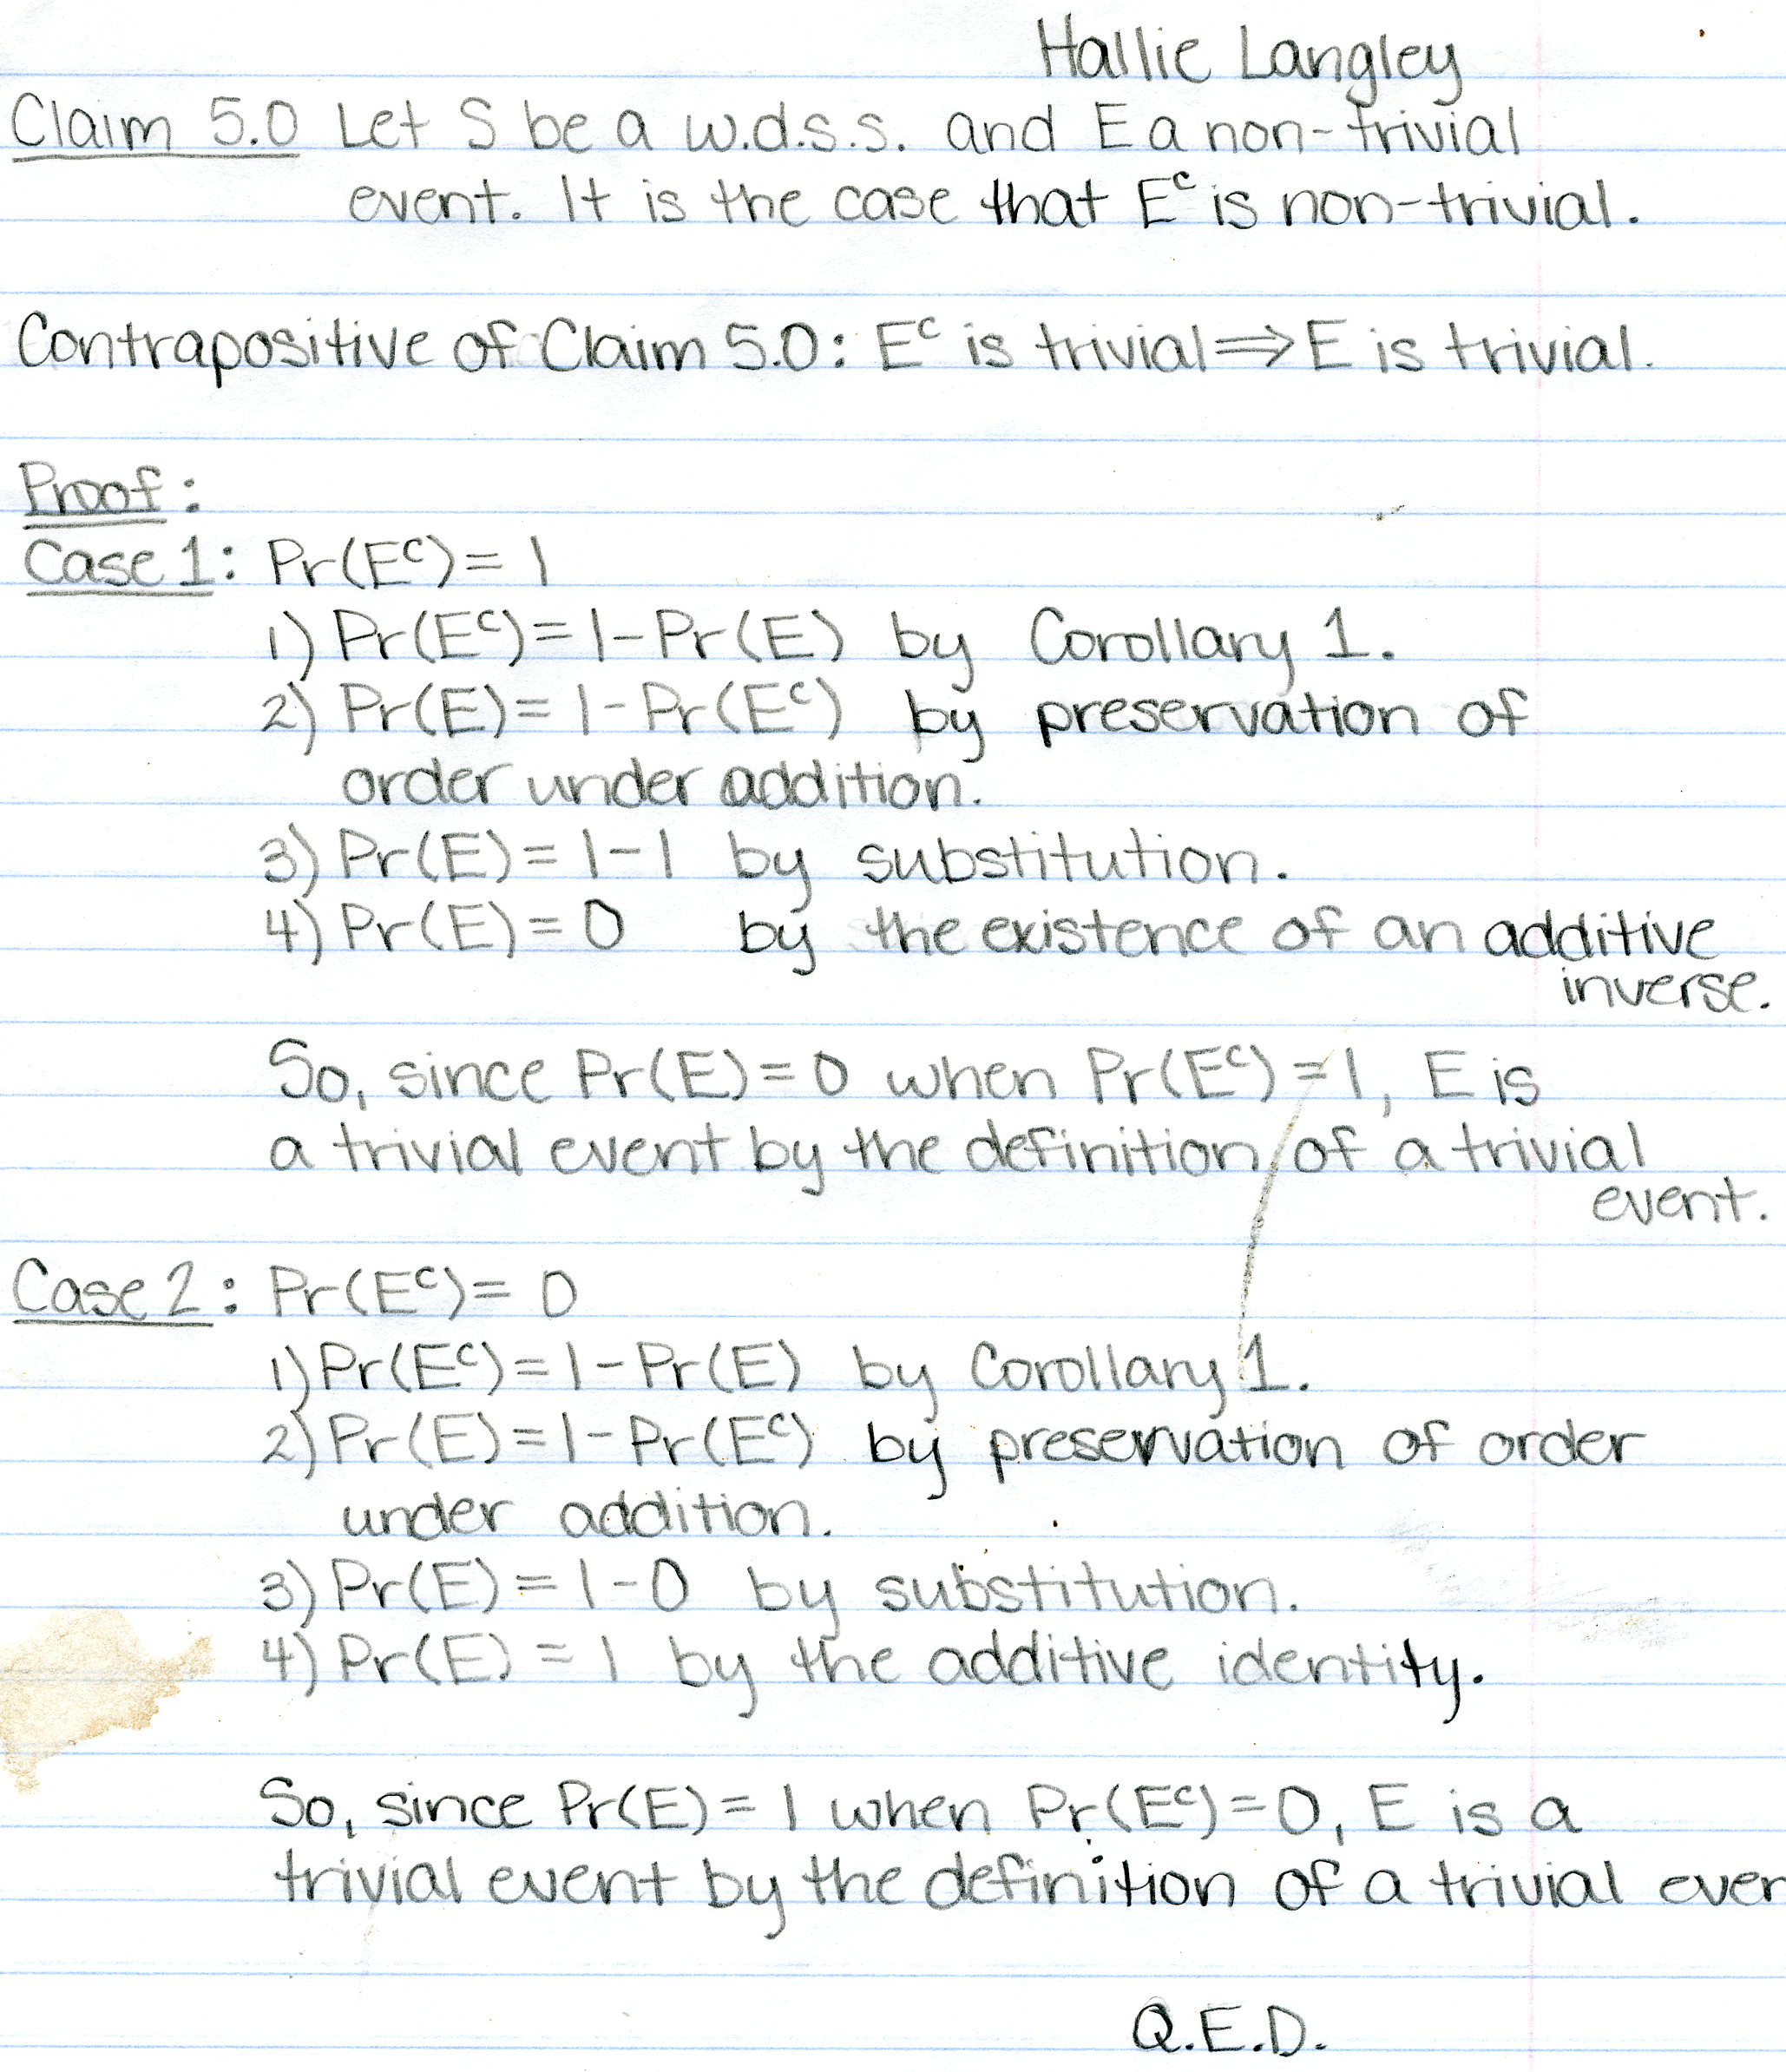 Hallie Langley
Claim 5.0 Let S be a w.d.s.s. and E a non-trivial
event. It is the case that Eᶜ is non-trivial.
Contrapositive of Claim 5.0: Eᶜ is trivial ⟹ E is trivial.
Proof:
Case 1: Pr(Eᶜ) = 1
1) Pr(Eᶜ) = 1 - Pr(E) by Corollary 1.
2) Pr(E) = 1 - Pr(Eᶜ) by preservation of
order under addition.
3) Pr(E) = 1 - 1 by substitution.
4) Pr(E) = 0 by the existence of an additive
inverse.
So, since Pr(E) = 0 when Pr(Eᶜ) = 1, E is
a trivial event by the definition of a trivial
event.
Case 2: Pr(Eᶜ) = 0
1) Pr(Eᶜ) = 1 - Pr(E) by Corollary 1.
2) Pr(E) = 1 - Pr(Eᶜ) by preservation of order
under addition.
3) Pr(E) = 1 - 0 by substitution.
4) Pr(E) = 1 by the additive identity.
So, since Pr(E) = 1 when Pr(Eᶜ) = 0, E is a
trivial event by the definition of a trivial even
Q.E.D.